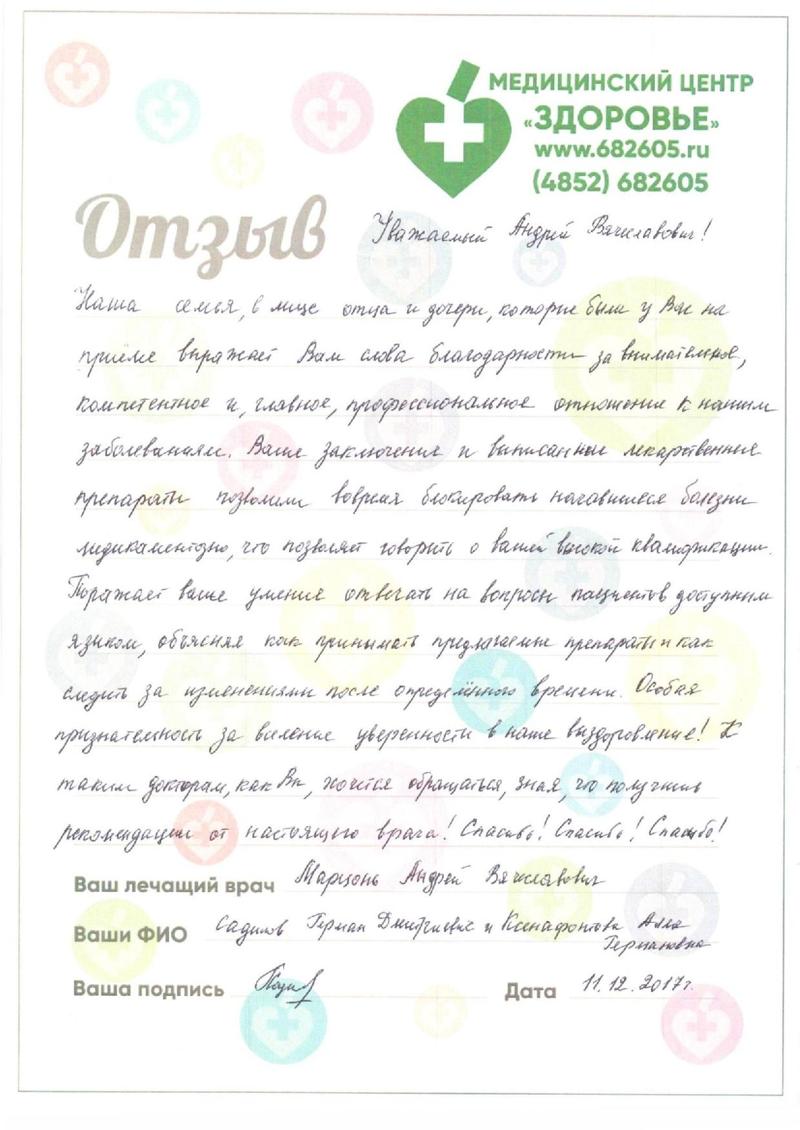 МЕДИЦИНСКИЙ ЦЕНТР
«ЗДОРОВЬЕ»
www.682605.ru
(4852) 682605
Отзыв
Уважаемый Андрей Вячеславович!
Наша семья, в лице отца и дочери, которые были у Вас на
приёме выражает Вам слова благодарности за внимательное,
компетентное и, главное, профессиональное отношение к нашим
заболеваниям. Ваше заключение и выписанные лекарственные
препараты позволили вовремя блокировать начавшиеся болезни
медикаментозно, что позволяет говорить о вашей высокой квалификации.
Поражает ваше умение отвечать на вопросы пациентов доступным
языком, объясняя как принимать предлагаемые препараты и как
следить за изменениями после определённого времени. Особая
признательность за вселение уверенности в наше выздоровление! К
таким докторам, как Вы, хочется обращаться, зная, что получишь
рекомендации от настоящего врача! Спасибо! Спасибо! Спасибо!
Ваш лечащий врач Марцонь Андрей Вячеславович
Ваши ФИО Герман Дмитриевич и Ксенафонтова Алла
Германовна
Ваша подпись Дата 11.12.2017г.